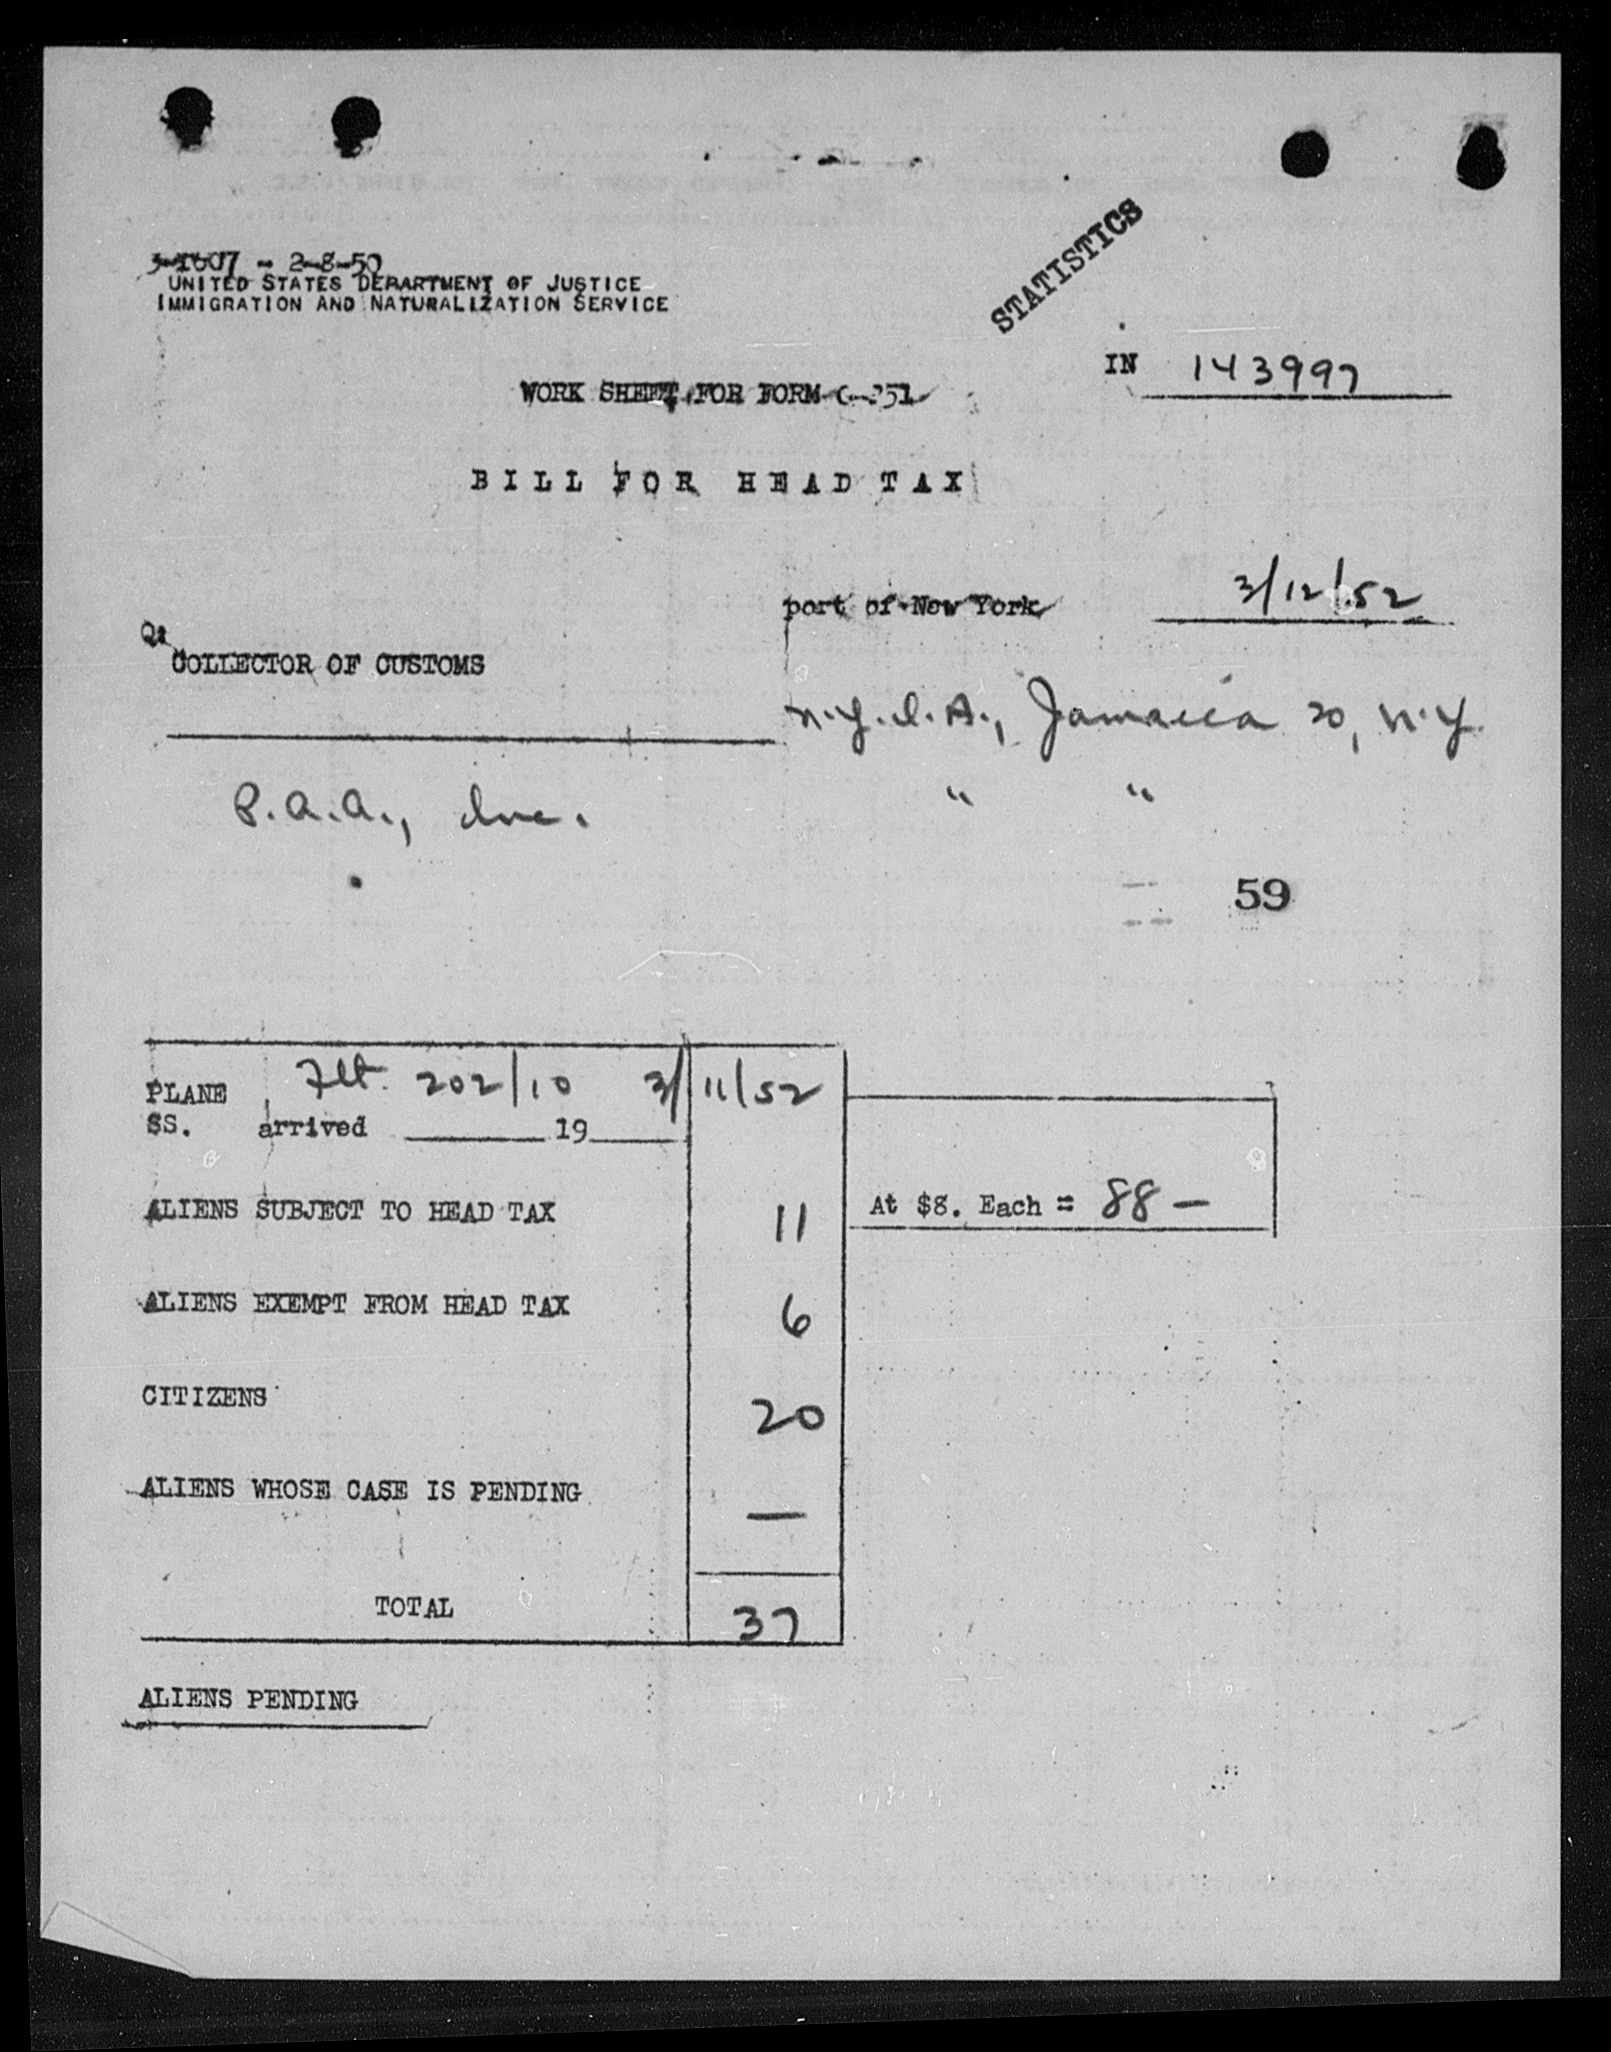 3-1607 - 2-8-50
UNITED STATES DEPARTMENT OF JUSTICE
IMMIGRATION AND NATURALIZATION SERVICE
STATISTICS
IN 143997
WORK SHEET FOR FORM
BILL FOR HEAD TAX
port of New York 3/12/52
COLLECTOR OF CUSTOMS
N.Y.I.A., Jamaica 20, N.Y.
P.A.A., Inc. " "
59
Flt. 202/10 3/11/52
PLANE
SS. arrived 19
ALIENS SUBJECT TO HEAD TAX 11 At $8. Each = 88 —
ALIENS EXEMPT FROM HEAD TAX 6
CITIZENS 20
ALIENS WHOSE CASE IS PENDING —
TOTAL 37
ALIENS PENDING